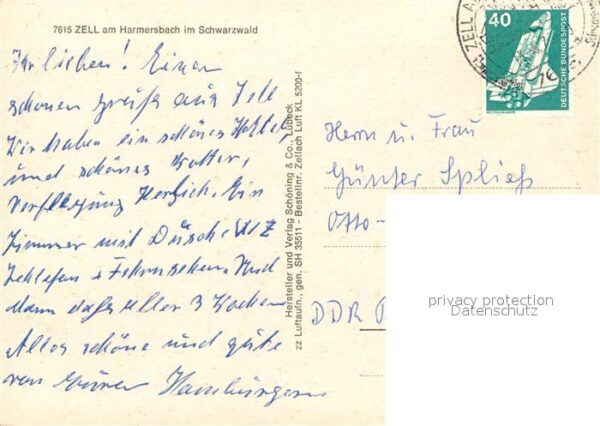 7615 ZELL am Harmersbach im Schwarzwald
Ihr lieben! Einen
schönen Gruß aus Zell
Wir haben ein schönes Hotel,
und schönes Wetter,
Verpflegung Herrlich. Ein
Zimmer mit Dusche WZ
Telefon u Fernsehen. Und
dann das aller 3 Wochen
Alles schöne und gute
von Euren Hamburgern
Hersteller und Verlag Schöning & Co., Lübeck
zz Luftaufn., gen. SH 35511 - Bestellnr. Zellach Luft KL 5200-f
40
DEUTSCHE BUNDESPOST
Herrn u. Frau
Günter Spließ
Otto-
DDR
privacy protection
Datenschutz